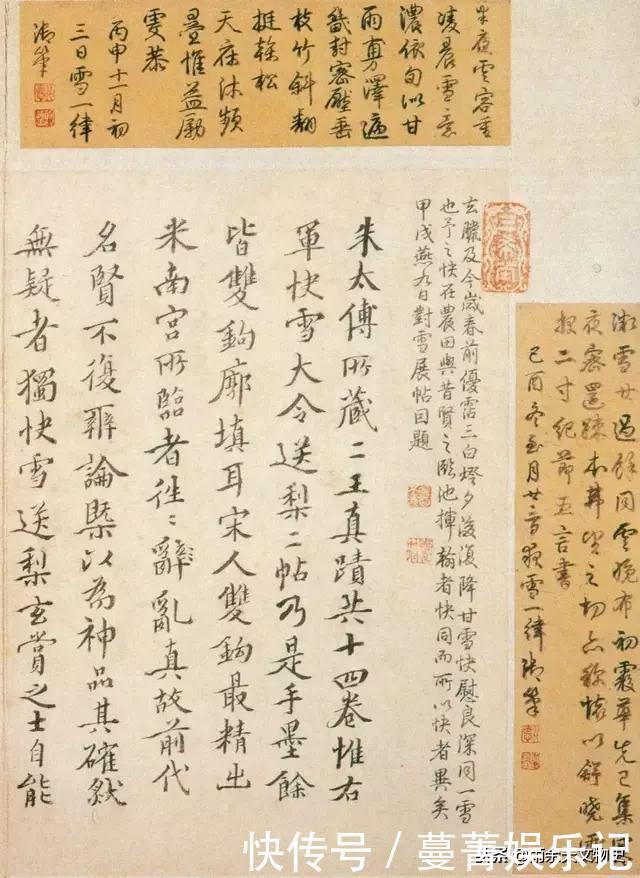 半夜雲容重
凌晨雪意
濃依旬似甘
雨澤遍
畿封密壓垂
枝竹斜翻
挺榦松
天庥沐頻
疊惟益勵
恭
丙申十一月初
三日雪一律
御筆
玄臘及今歲春前優霑三白燈夕後復降甘雪快慰良深同一雪
也予之快在農田與昔賢之臨池揮翰者快同而所以快者異矣
甲戌燕九日對雪展帖因題
雪廿過餘同雲晚布初霰華先已集
夜密還疎本弗望之切亦殊懷以舒曉雪
報二寸紀節五言書
己酉冬至月廿夜雪一律御筆
朱太傅所藏二王真蹟共十四卷惟右
軍快雪大令送梨二帖乃是手墨餘
皆雙鉤廓填耳宋人雙鉤最精出
米南宮所臨者徃〻辭亂真故前代
名賢不復辨論槩以為神品其確然
無疑者獨快雪送梨玄賞之士自能
快传号／蔓菁娱乐记